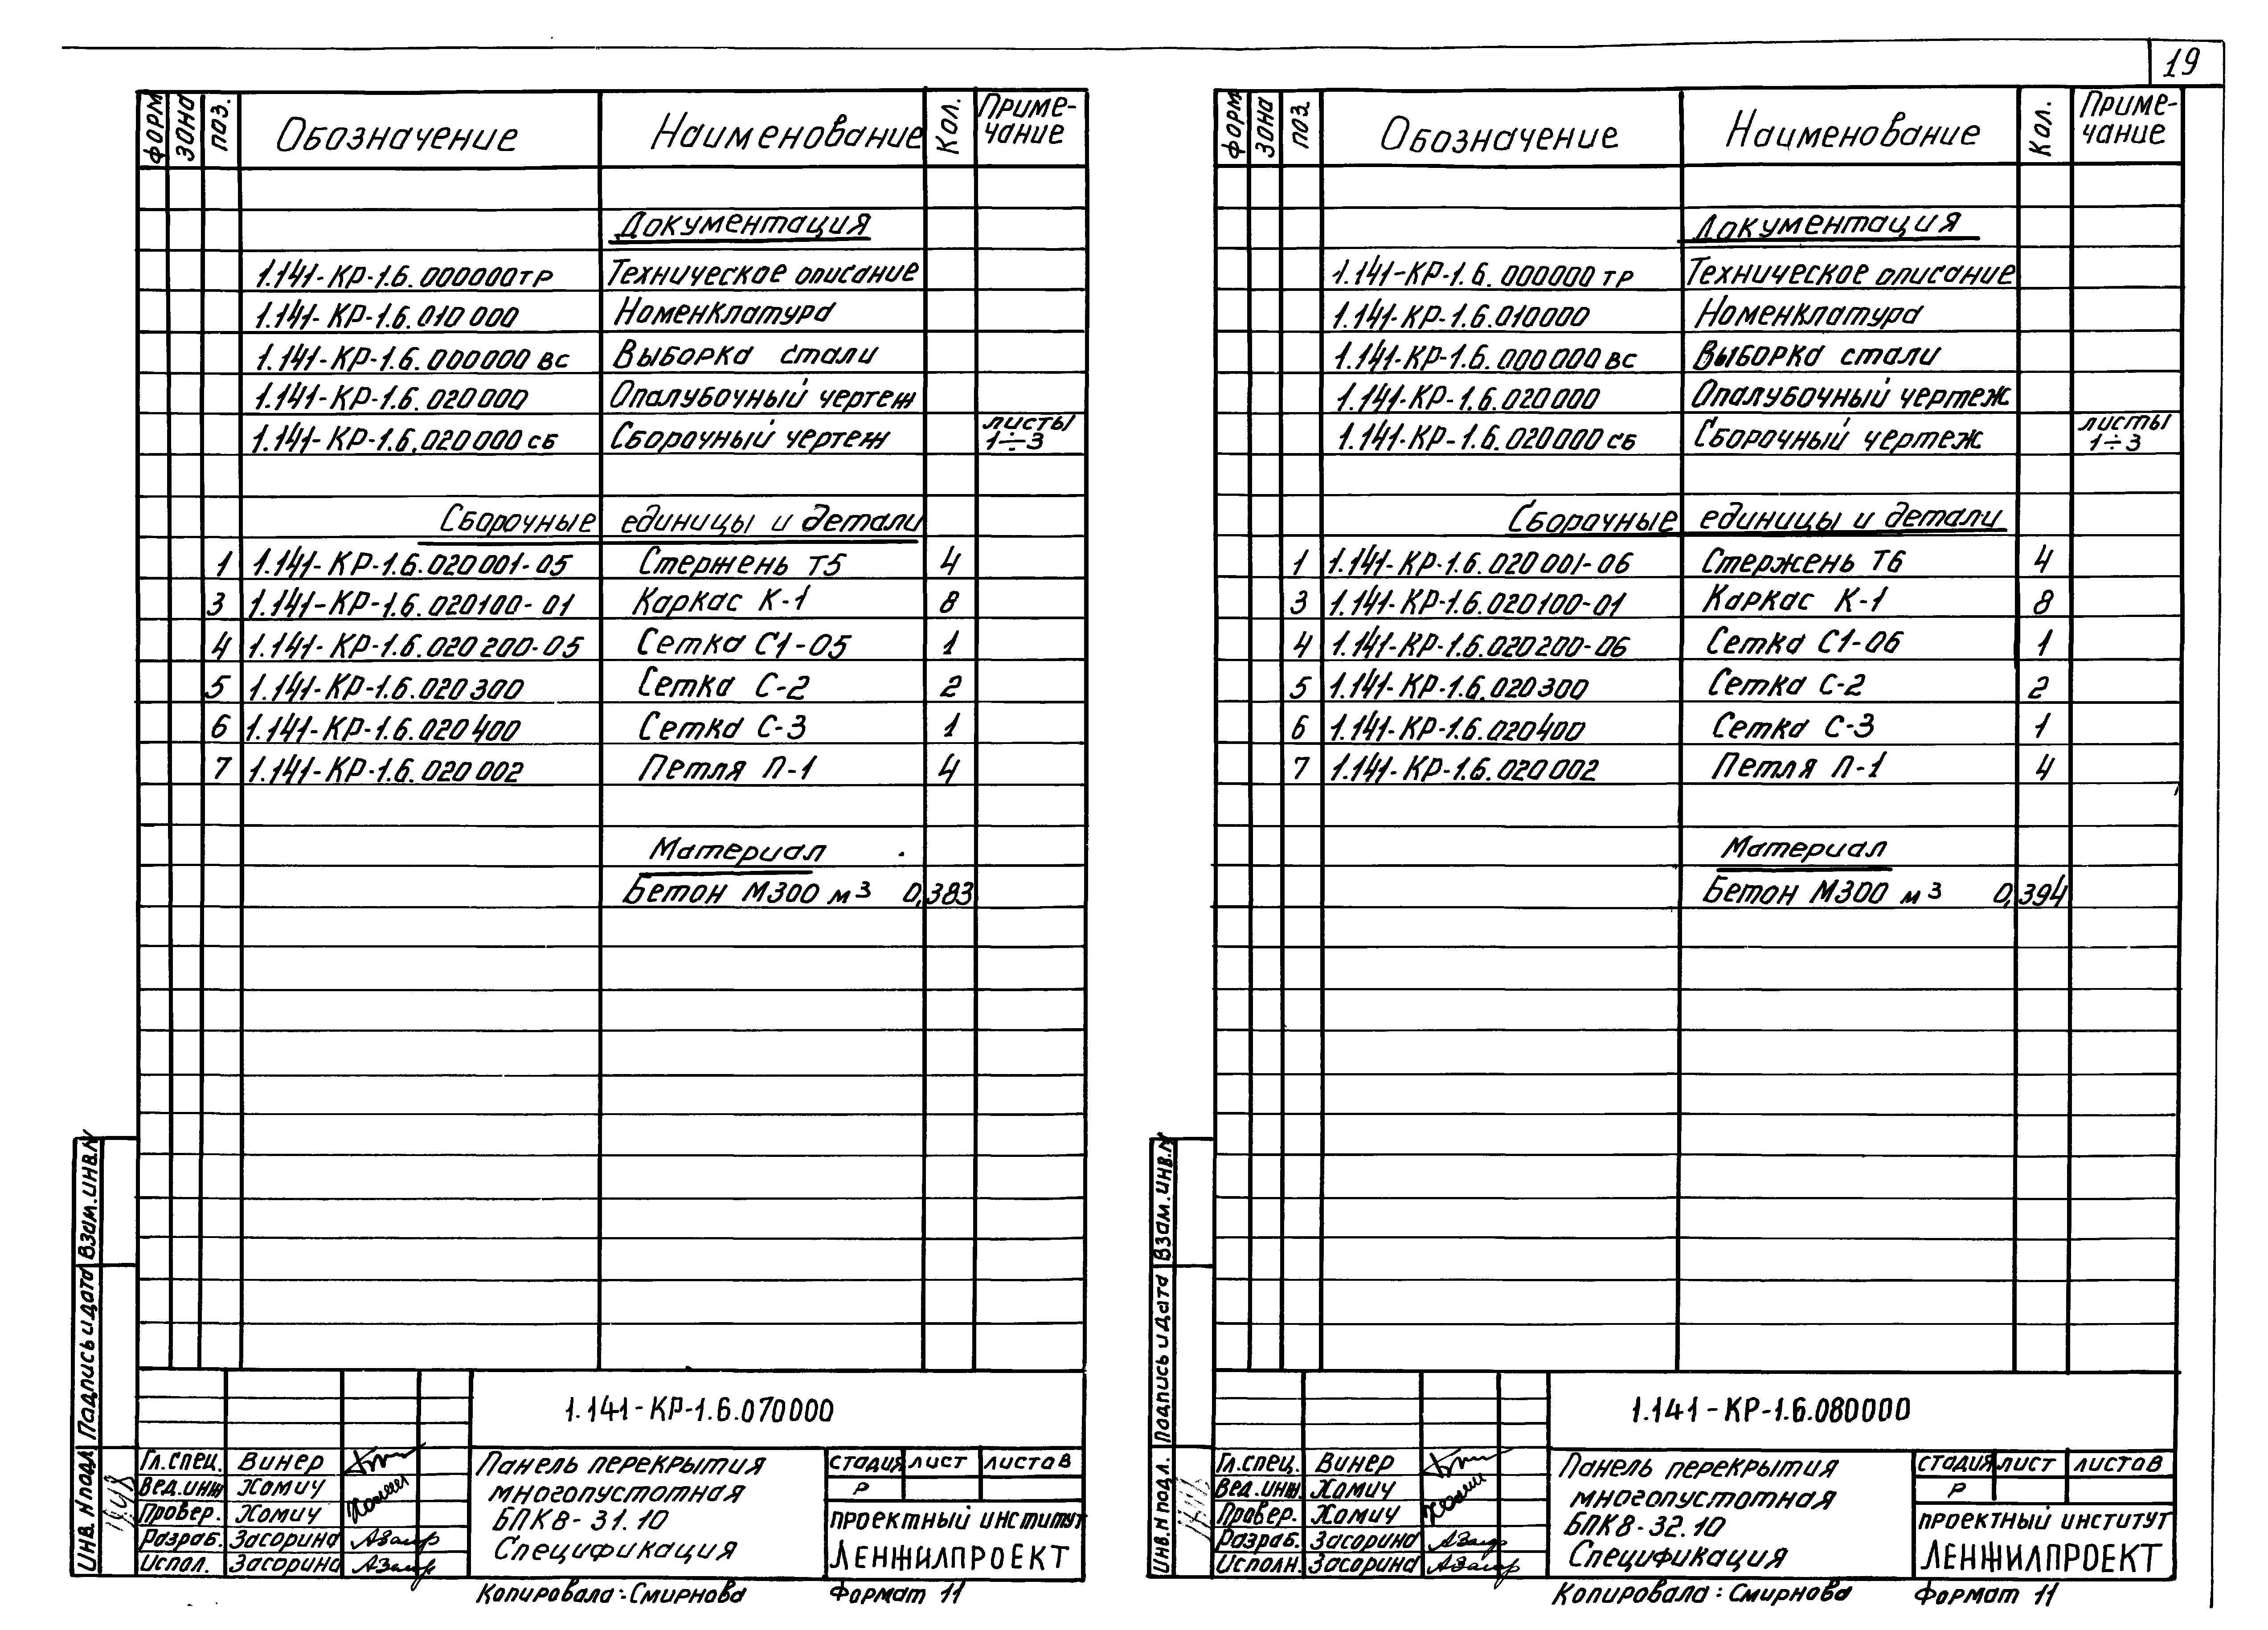 19
форм зона поз. Обозначение Наименование Кол. Приме-
чание
Документация
1.141-КР-1.6.000000ТР Техническое описание
1.141-КР-1.6.010000 Номенклатура
1.141-КР-1.6.000000ВС Выборка стали
1.141-КР-1.6.020000 Опалубочный чертеж
1.141-КР-1.6.020000СБ Сборочный чертеж листы
1÷3
Сборочные единицы и детали
1 1.141-КР-1.6.020001-05 Стержень Т5 4
3 1.141-КР-1.6.020100-01 Каркас К-1 8
4 1.141-КР-1.6.020200-05 Сетка С1-05 1
5 1.141-КР-1.6.020300 Сетка С-2 2
6 1.141-КР-1.6.020400 Сетка С-3 1
7 1.141-КР-1.6.020002 Петля П-1 4
Материал
Бетон М300 м3 0,383
Взам.инв.N
Подпись и дата
Инв. N подл
1.141-КР-1.6.070000
Гл.спец. Винер
Вед.инж Хомич
Провер. Хомич
Разраб. Засорина
Испол. Засорина
Панель перекрытия
многопустотная
БПК8-31.10
Спецификация
стадия лист листов
Р
проектный институт
ЛЕНЖИЛПРОЕКТ
Копировала: Смирнова Формат 11
форм зона поз. Обозначение Наименование Кол. Приме-
чание
Документация
1.141-КР-1.6.000000ТР Техническое описание
1.141-КР-1.6.010000 Номенклатура
1.141-КР-1.6.000000ВС Выборка стали
1.141-КР-1.6.020000 Опалубочный чертеж
1.141-КР-1.6.020000СБ Сборочный чертеж листы
1÷3
Сборочные единицы и детали
1 1.141-КР-1.6.020001-06 Стержень Т6 4
3 1.141-КР-1.6.020100-01 Каркас К-1 8
4 1.141-КР-1.6.020200-06 Сетка С1-06 1
5 1.141-КР-1.6.020300 Сетка С-2 2
6 1.141-КР-1.6.020400 Сетка С-3 1
7 1.141-КР-1.6.020002 Петля П-1 4
Материал
Бетон М300 м3 0,394
Взам.инв.N
Подпись и дата
Инв.N подл.
1.141-КР-1.6.080000
Гл.спец. Винер
Вед.инж. Хомич
Провер. Хомич
Разраб. Засорина
Исполн. Засорина
Панель перекрытия
многопустотная
БПК8-32.10
Спецификация
стадия лист листов
Р
проектный институт
ЛЕНЖИЛПРОЕКТ
Копировала: Смирнова Формат 11